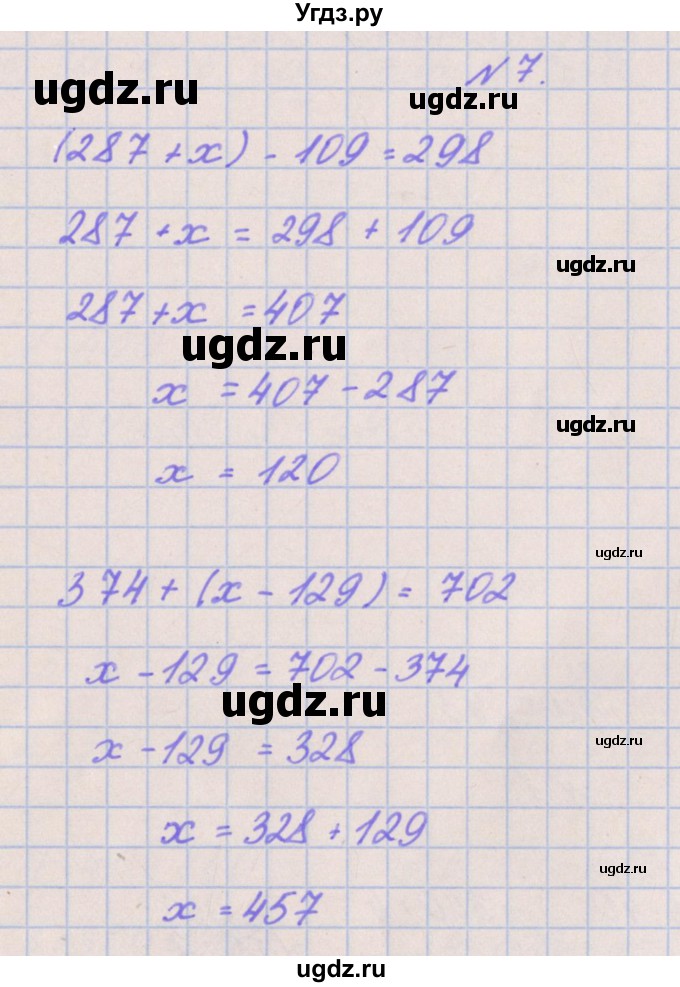 Угдз.ру
ugdz.ru
№ 7.
ugdz.ru
(287 + x) - 109 = 298
287 + x = 298 + 109
ugdz.ru
287 + x = 407
ugdz.ru
x = 407 - 287
ugdz.ru
x = 120
ugdz.ru
374 + (x - 129) = 702
x - 129 = 702 - 374
ugdz.ru
x - 129 = 328
ugdz.ru
x = 328 + 129
ugdz.ru
x = 457
ugdz.ru